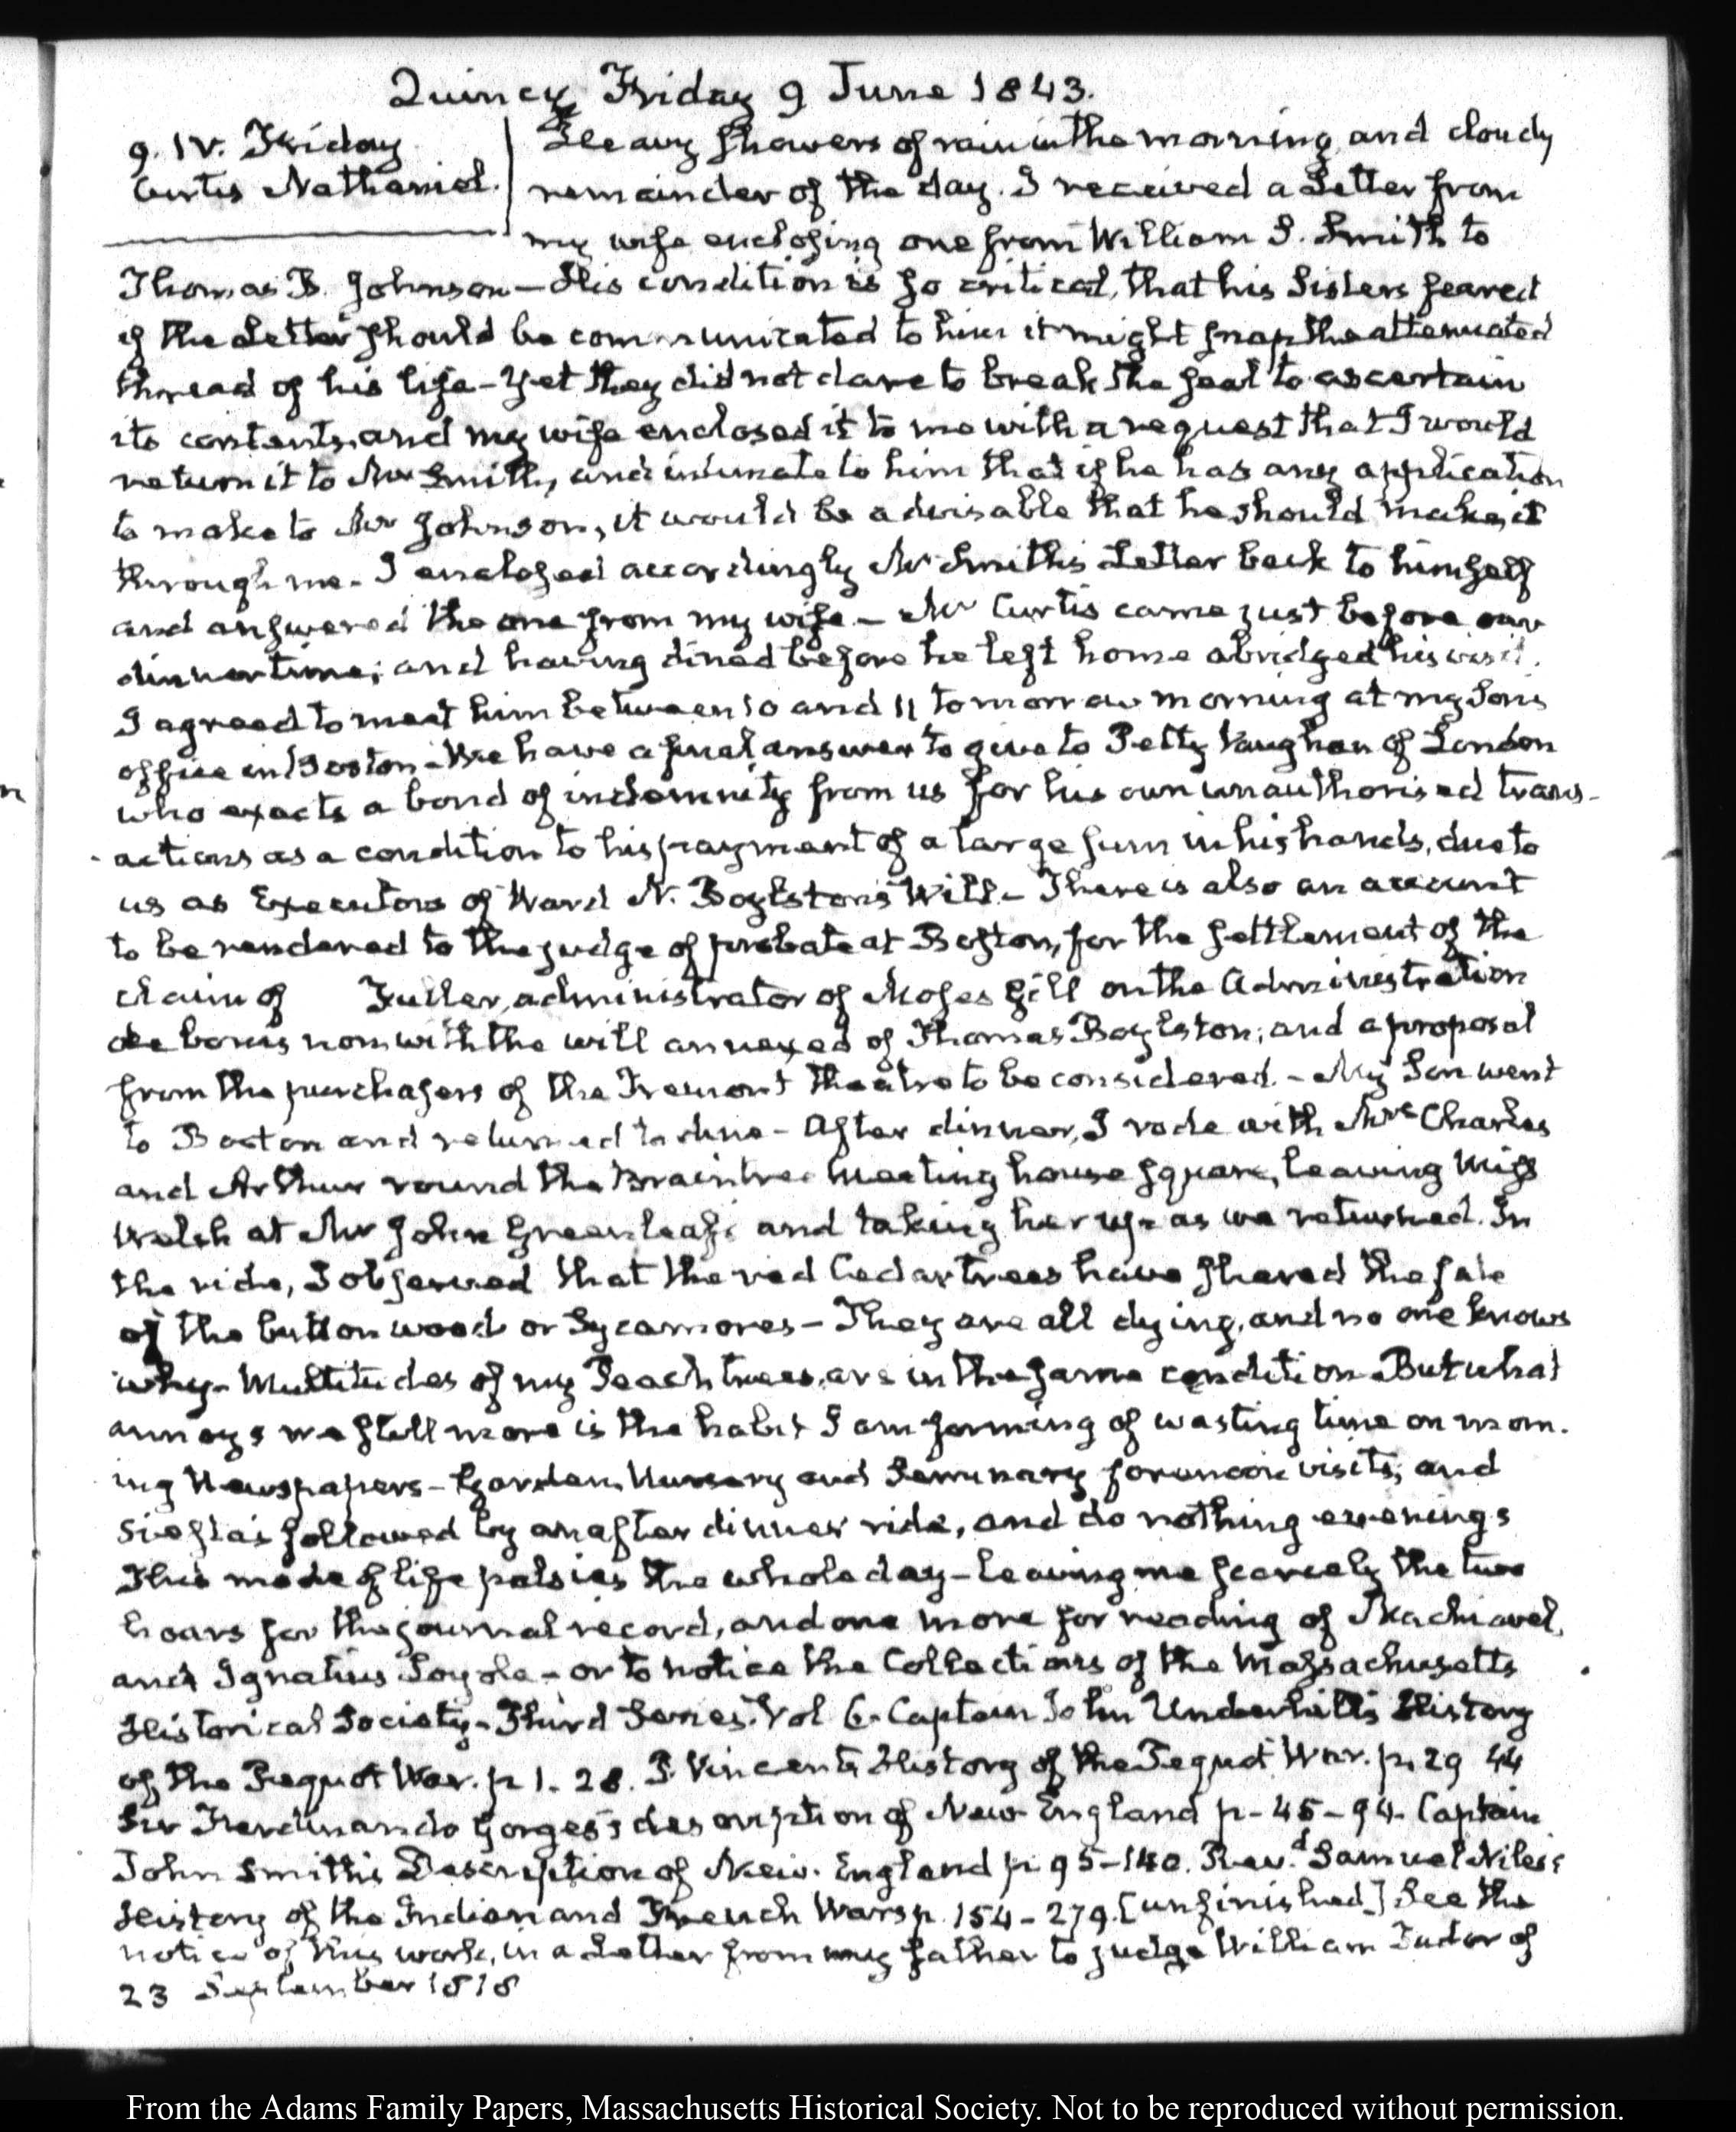 Quincy Friday 9 June 1843.
9. IV. Friday
Curtis Nathaniel.
Heavy showers of rain in the morning and cloudy
remainder of the day. I received a Letter from
my wife enclosing one from William S. Smith to
Thomas B. Johnson — His condition is so critical, that his Sisters feared
if the Letter should be communicated to him it might snap the attenuated
thread of his life - Yet they did not dare to break the seal to ascertain
its contents, and my wife enclosed it to me with a request that I would
return it to Mr Smith, and intimate to him that if he has any application
to make to Mr Johnson, it would be advisable that he should make it
through me - I enclosed accordingly Mr Smith's Letter back to himself
and answered the one from my wife. — Mr Curtis came just before our
dinner time; and having dined before he left home abridged his visit.
I agreed to meet him between 10 and 11 to morrow morning at my Son's
office in Boston - We have a final answer to give to Petty Vaughan of London
who exacts a bond of indemnity from us for his own unauthorised trans-
actions as a condition to his payment of a large sum in his hands, due to
us as Executors of Ward N. Boylston's Will. - There is also an account
to be rendered to the judge of probate at Boston, for the settlement of the
claim of Fuller, administrator of Moses Gill on the Administration
de bonis non with the will annexed of Thomas Boylston; and a proposal
from the purchasers of the Tremont theatre to be considered. - My Son went
to Boston and returned to dine - After dinner, I rode with Mrs Charles
and Arthur round the Braintree Meeting house square, leaving Miss
Welsh at Mr John Greenleaf's and taking her up as we returned. In
the ride, I observed that the red Cedar trees have shared the fate
of the button wood or Sycamores - They are all dying, and no one knows
why - Multitudes of my Peach trees, are in the same condition - But what
annoys me still more is the habit I am forming of wasting time on morn-
ing Newspapers - Garden, Nursery and Seminary forenoon visits; and
Siesta's followed by an after dinner ride, and do nothing evenings
This mode of life palsies the whole day - leaving me scarcely the two
hours for the journal record, and one more for reading of Machiavel,
and Ignatius Loyola - or to notice the Collections of the Massachusetts
Historical Society - Third Series. Vol 6. Captain John Underhill's History
of the Pequot War. p 1. 28. P. Vincent's History of the Pequot War. p. 29 44
Sir Ferdinando Gorges's description of New England p - 45 - 94. Captain
John Smith's Description of New. England p. 95 - 140. Revd. Samuel Niles's
History of the Indian and French Wars p. 154 - 279. [unfinished] See the
notice of this work, in a Letter from my father to judge William Tudor of
23 September 1818
From the Adams Family Papers, Massachusetts Historical Society. Not to be reproduced without permission.